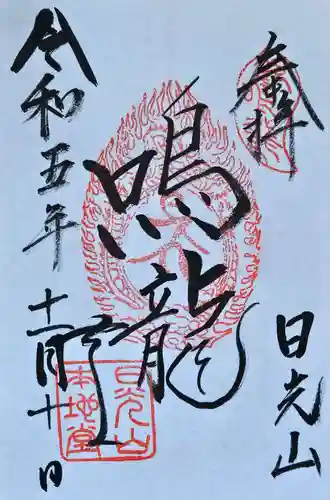 奉拝
日光山
鳴龍
令和五年
十一月十日
日光山
本地堂